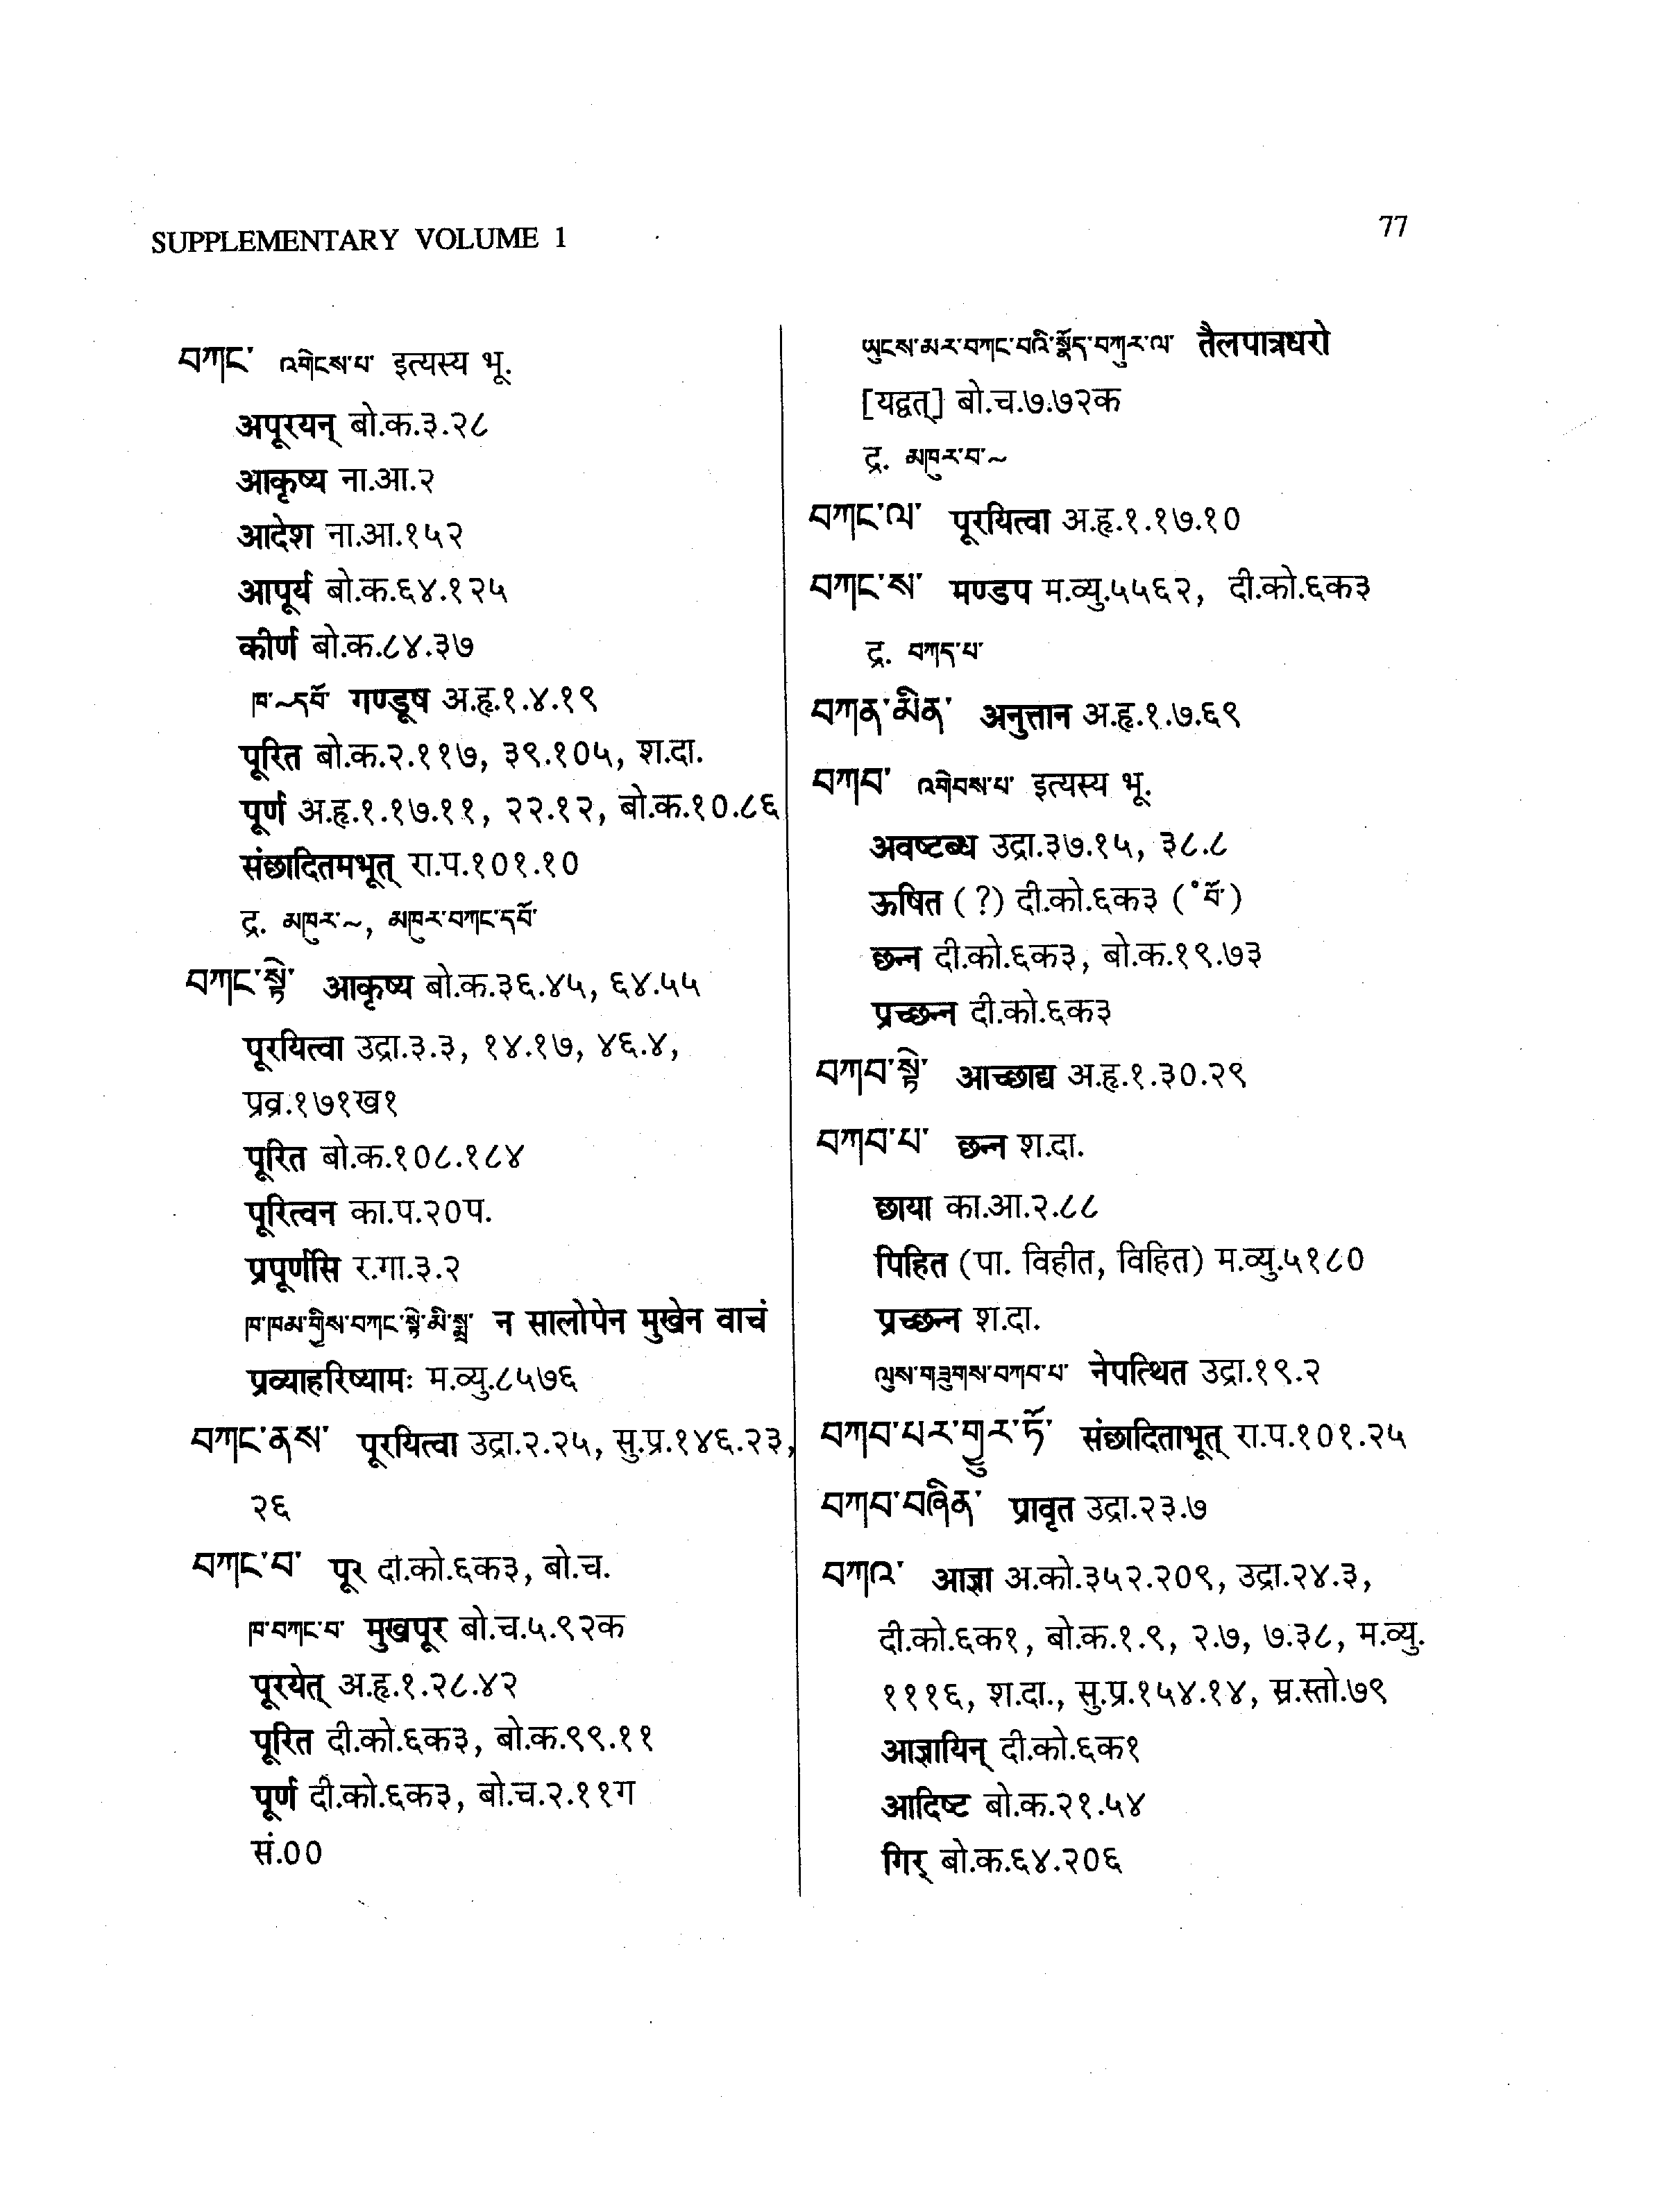 SUPPLEMENTARY VOLUME 1
77
བཀང་ འགེངས་པ་ इत्यस्य भू.
अपूरयन् बो.क.३.२८
आकृष्य ना.आ.२
आदेश ना.आ.१५२
आपूर्य बो.क.६४.१२५
कीर्ण बो.क.८४.३७
ཁ་~དབོ་ गण्डूष अ.हृ.१.४.१९
पूरित बो.क.२.११७, ३९.१०५, श.दा.
पूर्ण अ.हृ.१.१७.११, २२.१२, बो.क.१०.८६
संछादितमभूत् रा.प.१०१.१०
द्र. མཁུར་~, མཁུར་བཀང་དབོ་
བཀང་སྟེ་ आकृष्य बो.क.३६.४५, ६४.५५
पूरयित्वा उद्रा.३.३, १४.१७, ४६.४,
प्रव्र.१७१ख१
पूरित बो.क.१०८.१८४
पूरित्वन का.प.२०प.
प्रपूर्णसि र.गा.३.२
ཁ་ཁམ་གྱིས་བཀང་སྟེ་མི་སྨྲ་ न सालोपेन मुखेन वाचं
प्रव्याहरिष्यामः म.व्यु.८५७६
བཀང་ནས་ पूरयित्वा उद्रा.२.२५, सु.प्र.१४६.२३,
२६
བཀང་བ་ पूर दी.को.६क३, बो.च.
ཁ་བཀང་བ་ मुखपूर बो.च.५.९२क
पूरयेत् अ.हृ.१.२८.४२
पूरित दी.को.६क३, बो.क.९९.११
पूर्ण दी.को.६क३, बो.च.२.११ग
सं.००
ཡུངས་མར་བཀང་བའི་སྣོད་བཀུར་ལ་ तैलपात्रधरो
[यद्वत्] बो.च.७.७२क
द्र. མཁུར་བ་~
བཀང་ལ་ पूरयित्वा अ.हृ.१.१७.१०
བཀང་ས་ मण्डप म.व्यु.५५६२, दी.को.६क३
द्र. བཀད་པ་
བཀན་མིན་ अनुत्तान अ.हृ.१.७.६९
བཀབ་ འགེབས་པ་ इत्यस्य भू.
अवष्टब्ध उद्रा.३७.१५, ३८.८
ऊषित (?) दी.को.६क३ (॰བོ་)
छन्न दी.को.६क३, बो.क.१९.७३
प्रच्छन्न दी.को.६क३
བཀབ་སྟེ་ आच्छाद्य अ.हृ.१.३०.२९
བཀབ་པ་ छन्न श.दा.
छाया का.आ.२.८८
पिहित (पा. विहीत, विहित) म.व्यु.५१८०
प्रच्छन्न श.दा.
ལུས་གཟུགས་བཀབ་པ་ नेपत्थित उद्रा.१९.२
བཀབ་པར་གྱུར་ཏོ་ संछादिताभूत् रा.प.१०१.२५
བཀབ་བཞིན་ प्रावृत उद्रा.२३.७
བཀའ་ आज्ञा अ.को.३५२.२०९, उद्रा.२४.३,
दी.को.६क१, बो.क.१.९, २.७, ७.३८, म.व्यु.
१११६, श.दा., सु.प्र.१५४.१४, स्र.स्तो.७९
आज्ञायिन् दी.को.६क१
आदिष्ट बो.क.२१.५४
गिर् बो.क.६४.२०६